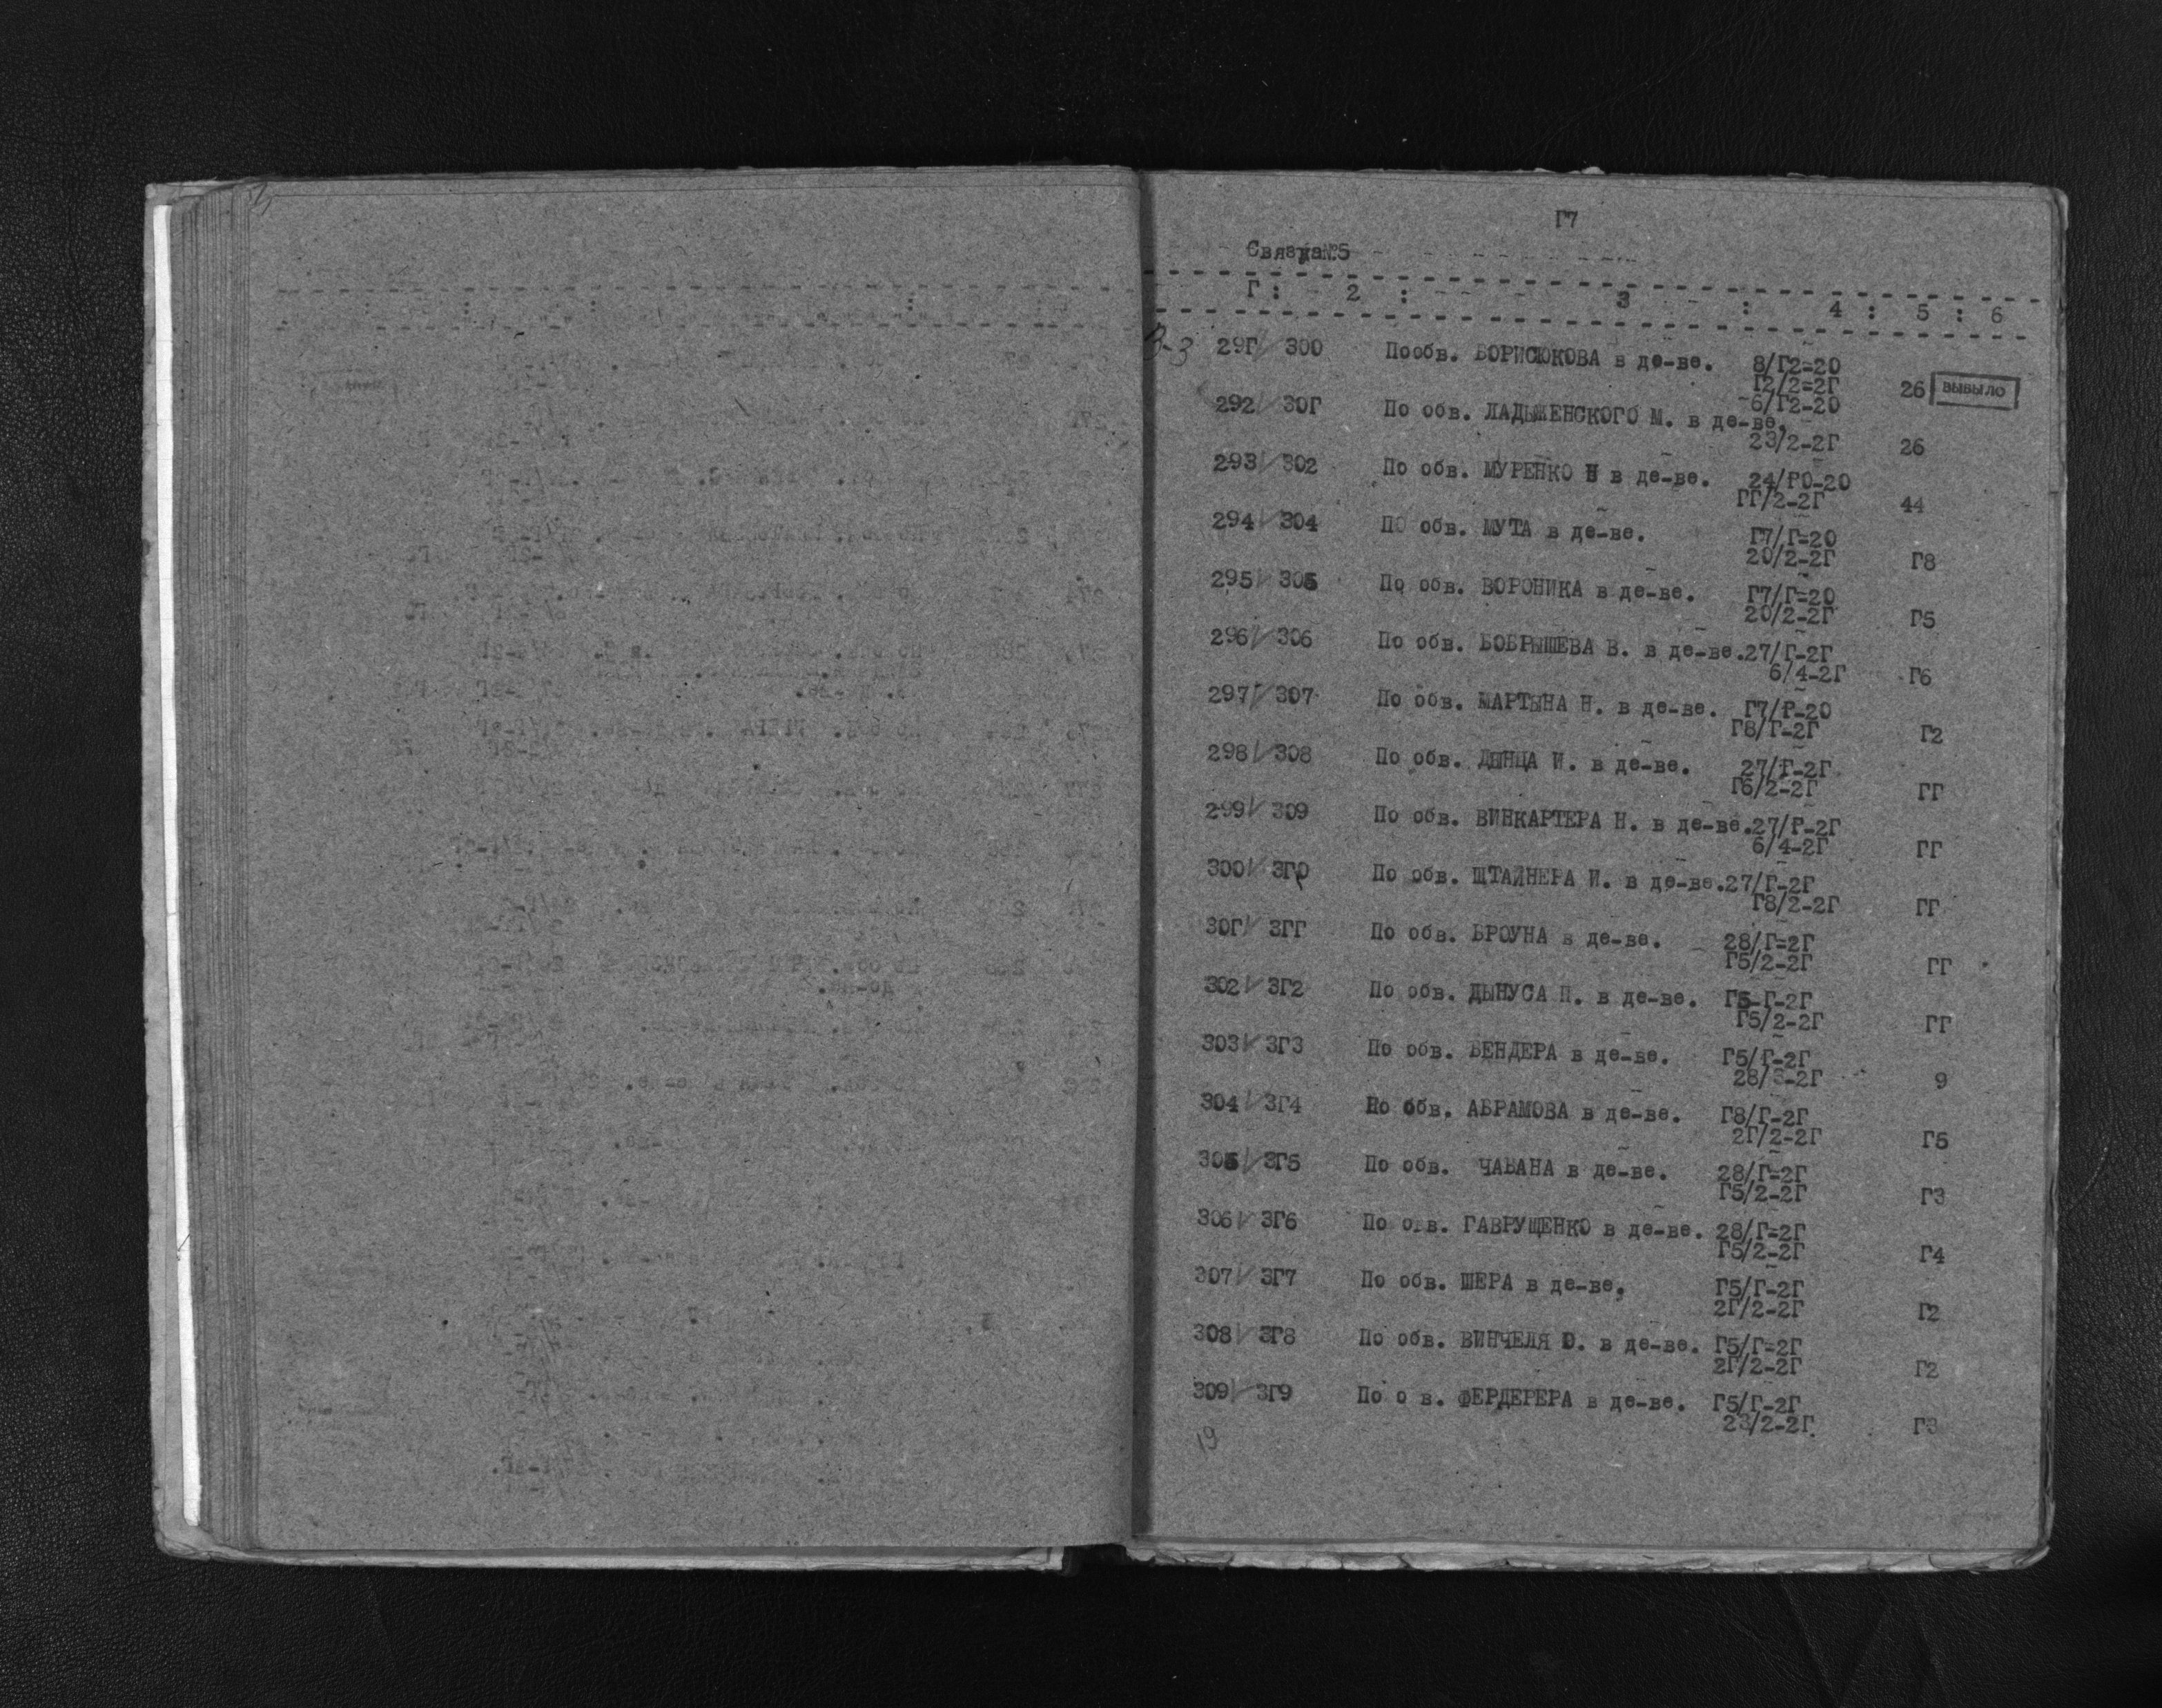 Г7
Связка№5
Г : 2 : 3 : 4 : 5 : 6
29Г 300 Пообв. БОРИСЮКОВА в де-ве. 8/Г2=20
Г2/2=2Г 26 ВЫБЫЛО
292 30Г По обв. ЛАДЫЖЕНСКОГО М. в де-ве. 6/Г2-20
23/2-2Г 26
293 302 По обв. МУРЕНКО Н в де-ве. 24/Г0-20
ГГ/2-2Г 44
294 304 ПО обв. МУТА в де-ве. Г7/Г=20
20/2-2Г Г8
295 305 По обв. ВОРОНИКА в де-ве. Г7/Г=20
20/2-2Г Г5
296 306 По обв. БОБРЫШЕВА В. в де-ве.27/Г-2Г
6/4-2Г Г6
297 307 По обв. МАРТЫНА Н. в де-ве. Г7/Г-20
Г8/Г-2Г Г2
298 308 По обв. ДЫНЦА И. в де-ве. 27/Г-2Г
Г6/2-2Г ГГ
299 309 По обв. ВИНКАРТЕРА Н. в де-ве.27/Г-2Г
6/4-2Г ГГ
300 3Г0 По обв. ШТАЙНЕРА И. в де-ве.27/Г-2Г
Г8/2-2Г ГГ
30Г 3ГГ По обв. БРОУНА в де-ве. 28/Г=2Г
Г5/2-2Г ГГ
302 3Г2 По обв. ДЫНУСА П. в де-ве. Г5-Г-2Г
Г5/2-2Г ГГ
303 3Г3 По обв. БЕНДЕРА в де-ве. Г5/Г-2Г
28/3-2Г 9
304 3Г4 По обв. АБРАМОВА в де-ве. Г8/Г-2Г
2Г/2-2Г Г5
305 3Г5 По обв. ЧАБАНА в де-ве. 28/Г=2Г
Г5/2-2Г Г3
306 3Г6 По о в. ГАВРУЩЕНКО в де-ве. 28/Г=2Г
Г5/2-2Г Г4
307 3Г7 По обв. ШЕРА в де-ве. Г5/Г-2Г
2Г/2-2Г Г2
308 3Г8 По обв. ВИНЧЕЛЯ Ю. в де-ве. Г5/Г=2Г
2Г/2-2Г Г2
309 3Г9 По о в. ФЕРДЕРЕРА в де-ве. Г5/Г-2Г
23/2-2Г Г3
19